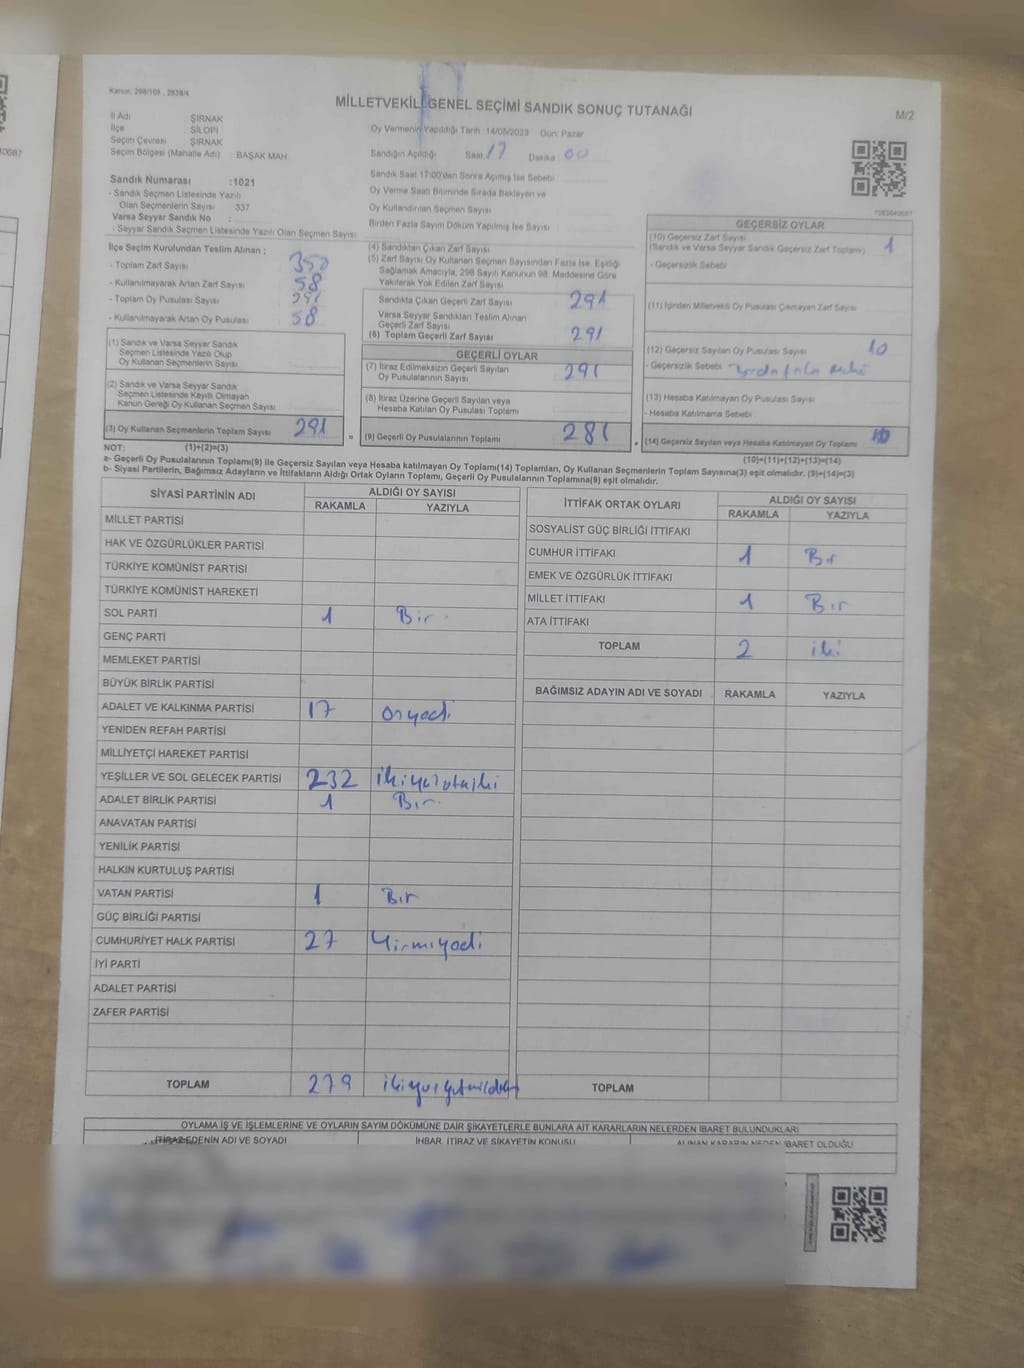 Kanun: 298/105 , 2839/4
MİLLETVEKİLİ GENEL SEÇİMİ SANDIK SONUÇ TUTANAĞI
M/2
İl Adı : ŞIRNAK
İlçe : SİLOPİ
Seçim Çevresi : ŞIRNAK
Seçim Bölgesi (Mahalle Adı) : BAŞAK MAH.
Sandık Numarası : 1021
- Sandık Seçmen Listesinde Yazılı
Olan Seçmenlerin Sayısı 337
Varsa Seyyar Sandık No :
- Seyyar Sandık Seçmen Listesinde Yazılı Olan Seçmen Sayısı
Oy Vermenin Yapıldığı Tarih : 14/05/2023 Gün: Pazar
Sandığın Açıldığı Saat 17 Dakika : 00
Sandık Saat 17:00'den Sonra Açılmış İse Sebebi
Oy Verme Saati Bitiminde Sırada Bekleyen ve
Oy Kullandırılan Seçmen Sayısı
Birden Fazla Sayım Döküm Yapılmış İse Sayısı
İlçe Seçim Kurulundan Teslim Alınan ;
- Toplam Zarf Sayısı 350
- Kullanılmayarak Artan Zarf Sayısı 58
- Toplam Oy Pusulası Sayısı 291
- Kullanılmayarak Artan Oy Pusulası 58
(1) Sandık ve Varsa Seyyar Sandık
Seçmen Listesinde Yazılı Olup
Oy Kullanan Seçmenlerin Sayısı
(2) Sandık ve Varsa Seyyar Sandık
Seçmen Listesinde Kayıtlı Olmayan
Kanun Gereği Oy Kullanan Seçmen Sayısı
(3) Oy Kullanan Seçmenlerin Toplam Sayısı 291
(4) Sandıktan Çıkan Zarf Sayısı
(5) Zarf Sayısı Oy Kullanan Seçmen Sayısından Fazla İse, Eşitliği
Sağlamak Amacıyla, 298 Sayılı Kanunun 98. Maddesine Göre
Yakılarak Yok Edilen Zarf Sayısı
Sandıkta Çıkan Geçerli Zarf Sayısı 291
Varsa Seyyar Sandıktan Teslim Alınan
Geçerli Zarf Sayısı
(6) Toplam Geçerli Zarf Sayısı 291
GEÇERLİ OYLAR
(7) İtiraz Edilmeksizin Geçerli Sayılan
Oy Pusulalarının Sayısı 291
(8) İtiraz Üzerine Geçerli Sayılan veya
Hesaba Katılan Oy Pusulası Toplamı
= (9) Geçerli Oy Pusulalarının Toplamı 281
GEÇERSİZ OYLAR
(10) Geçersiz Zarf Sayısı 1
(Sandık ve Varsa Seyyar Sandık Geçersiz Zarf Toplamı)
- Geçersizlik Sebebi
(11) İçinden Milletvekili Oy Pusulası Çıkmayan Zarf Sayısı
(12) Geçersiz Sayılan Oy Pusulası Sayısı 10
- Geçersizlik Sebebi
(13) Hesaba Katılmayan Oy Pusulası Sayısı
- Hesaba Katılmama Sebebi
(14) Geçersiz Sayılan veya Hesaba Katılmayan Oy Toplamı 10
NOT: (1)+(2)=(3) (10)+(11)+(12)+(13)=(14)
a- Geçerli Oy Pusulası Toplamı(9) İle Geçersiz Sayılan veya Hesaba katılmayan Oy Toplamı(14) Toplamları, Oy Kullanan Seçmenlerin Toplam Sayısına(3) eşit olmalıdır. (9)+(14)=(3)
b- Siyasi Partilerin, Bağımsız Adayların ve İttifakların Aldığı Ortak Oyların Toplamı, Geçerli Oy Pusulalarının Toplamına(9) eşit olmalıdır.
SİYASİ PARTİNİN ADI ALDIĞI OY SAYISI
RAKAMLA YAZIYLA
MİLLET PARTİSİ
HAK VE ÖZGÜRLÜKLER PARTİSİ
TÜRKİYE KOMÜNİST PARTİSİ
TÜRKİYE KOMÜNİST HAREKETİ
SOL PARTİ 1 Bir
GENÇ PARTİ
MEMLEKET PARTİSİ
BÜYÜK BİRLİK PARTİSİ
ADALET VE KALKINMA PARTİSİ 17 Onyedi
YENİDEN REFAH PARTİSİ
MİLLİYETÇİ HAREKET PARTİSİ
YEŞİLLER VE SOL GELECEK PARTİSİ 232
ADALET BİRLİK PARTİSİ 1 Bir
ANAVATAN PARTİSİ
YENİLİK PARTİSİ
HALKIN KURTULUŞ PARTİSİ
VATAN PARTİSİ 1 Bir
GÜÇ BİRLİĞİ PARTİSİ
CUMHURİYET HALK PARTİSİ 27 Yirmiyedi
İYİ PARTİ
ADALET PARTİSİ
ZAFER PARTİSİ
TOPLAM 279
İTTİFAK ORTAK OYLARI ALDIĞI OY SAYISI
RAKAMLA YAZIYLA
SOSYALİST GÜÇ BİRLİĞİ İTTİFAKI
CUMHUR İTTİFAKI 1 Bir
EMEK VE ÖZGÜRLÜK İTTİFAKI
MİLLET İTTİFAKI 1 Bir
ATA İTTİFAKI
TOPLAM 2 iki
BAĞIMSIZ ADAYIN ADI VE SOYADI RAKAMLA YAZIYLA
TOPLAM
OYLAMA İŞ VE İŞLEMLERİNE VE OYLARIN SAYIM DÖKÜMÜNE DAİR ŞİKAYETLERLE BUNLARA AİT KARARLARIN NELERDEN İBARET BULUNDUKLARI
İTİRAZ EDENİN ADI VE SOYADI İHBAR, İTİRAZ VE ŞİKAYETİN KONUSU ALINAN KARARIN NEDEN İBARET OLDUĞU